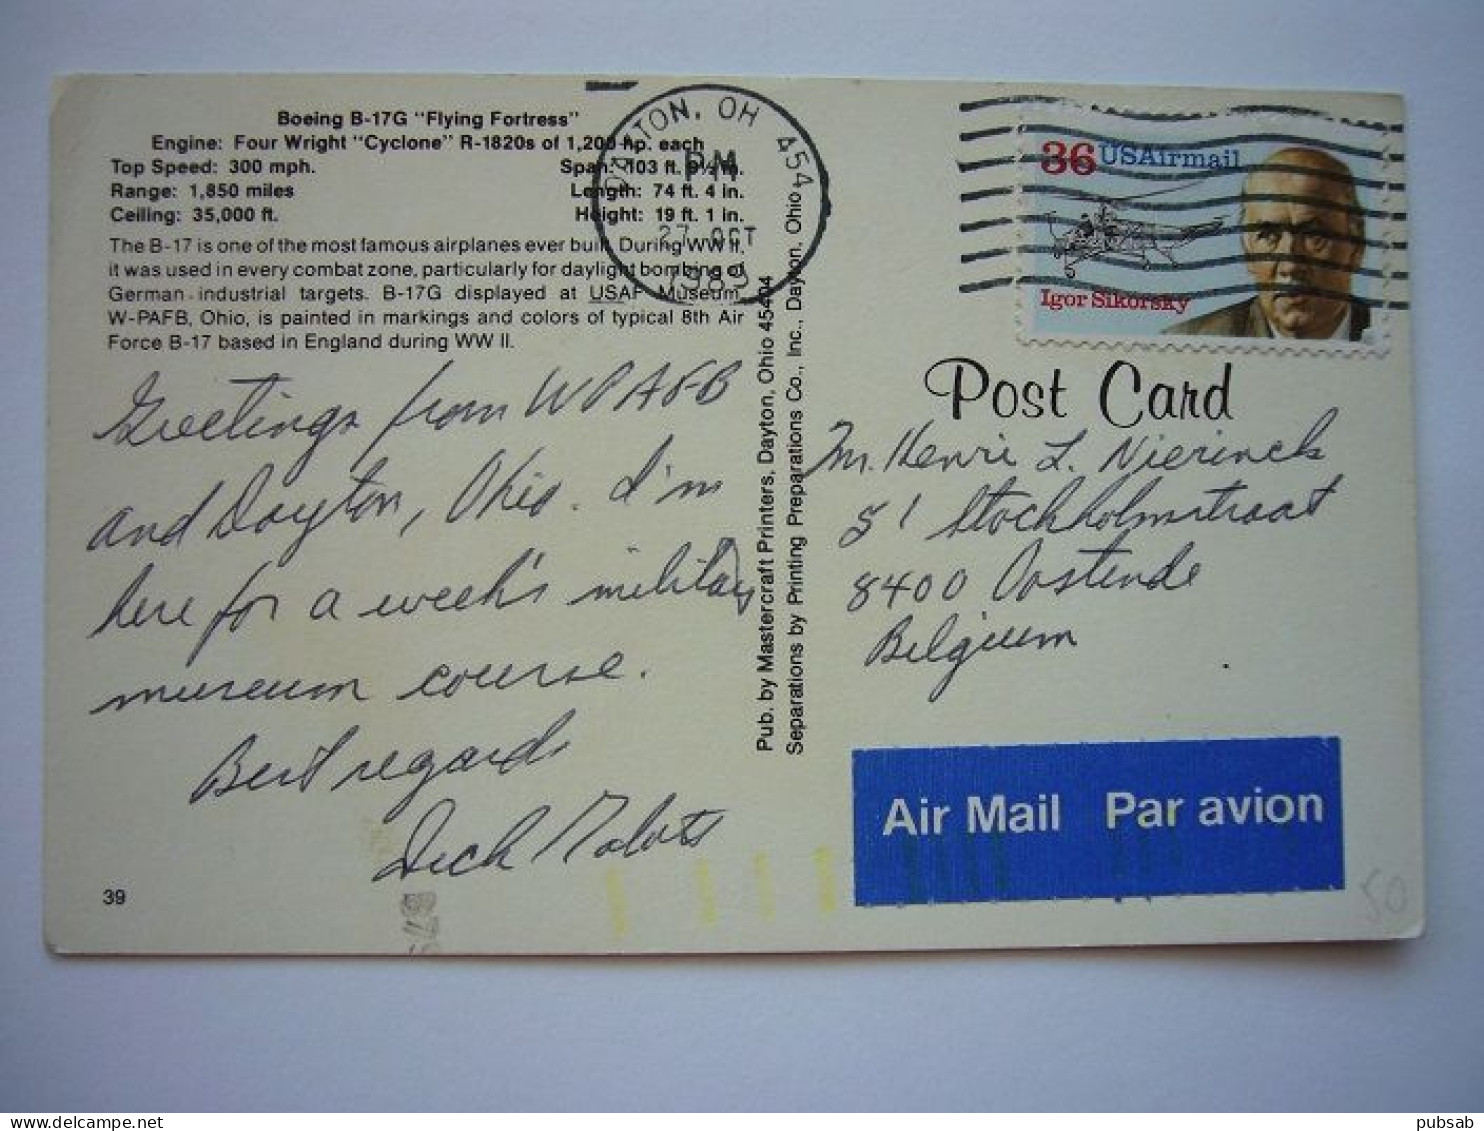 Boeing B-17G "Flying Fortress"
Engine: Four Wright "Cyclone" R-1820s of 1,200 hp. each
Top Speed: 300 mph. Span: 103 ft. 9½ in.
Range: 1,850 miles Length: 74 ft. 4 in.
Ceiling: 35,000 ft. Height: 19 ft. 1 in.
The B-17 is one of the most famous airplanes ever built. During WW II,
it was used in every combat zone, particularly for daylight bombing of
German industrial targets. B-17G displayed at USAF Museum,
W-PAFB, Ohio, is painted in markings and colors of typical 8th Air
Force B-17 based in England during WW II.
Greetings from WPAFB
and Dayton, Ohio. I'm
here for a week's military
museum course.
Best regards
Dick
39
Pub. by Mastercraft Printers, Dayton, Ohio 45404
Separations by Printing Preparations Co., Inc., Dayton, Ohio 454
DAYTON, OH 454
PM
27 OCT
1989
36 USAirmail
Igor Sikorsky
Post Card
Mr. Henri L. Nierinck
51 Stockholmstraat
8400 Oostende
Belgium
Air Mail Par avion
50
pubsab